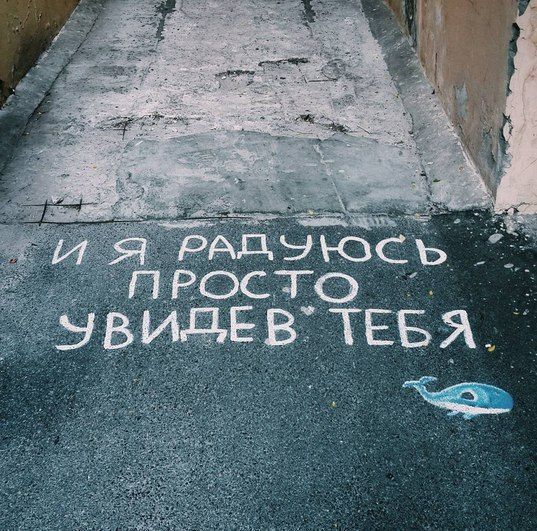 И Я РАДУЮСЬ
ПРОСТО
УВИДЕВ ТЕБЯ